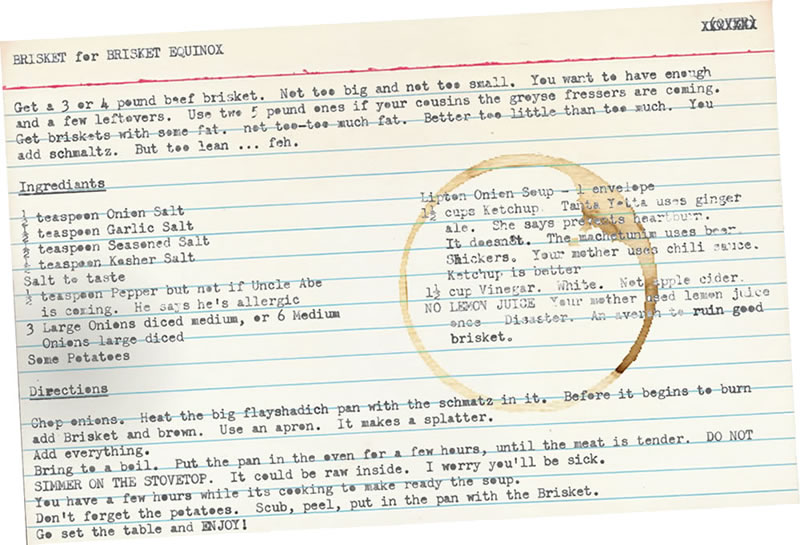 (OVER)
BRISKET for BRISKET EQUINOX
Get a 3 or 4 pound beef brisket. Not too big and not too small. You want to have enough
and a few leftovers. Use two 5 pound ones if your cousins the groyse fressers are coming.
Get briskets with some fat. not too-too much fat. Better too little than too much. You
add schmaltz. But too lean ... feh.
Ingrediants
½ teaspoon Onion Salt
½ teaspoon Garlic Salt
½ teaspoon Seasoned Salt
½ teaspoon Kosher Salt
Salt to taste
½ teaspoon Pepper but not if Uncle Abe
is coming. He says he's allergic
3 Large Onions diced medium, or 6 Medium
Onions large diced
Some Potatoes
Lipton Onion Soup - 1 envelope
1½ cups Ketchup. Tanta Yetta uses ginger
ale. She says prevents heartburn.
It doesn't. The machetunim uses beer.
Shickers. Your mother uses chili sauce.
Ketchup is better
1½ cup Vinegar. White. Not apple cider.
NO LEMON JUICE Your mother used lemon juice
once Disaster. An averah to ruin good
brisket.
Directions
Chop onions. Heat the big flayshadich pan with the schmatz in it. Before it begins to burn
add Brisket and brown. Use an apron. It makes a splatter.
Add everything.
Bring to a boil. Put the pan in the oven for a few hours, until the meat is tender. DO NOT
SIMMER ON THE STOVETOP. It could be raw inside. I worry you'll be sick.
You have a few hours while its cooking to make ready the soup.
Don't forget the potatoes. Scub, peel, put in the pan with the Brisket.
Go set the table and ENJOY!